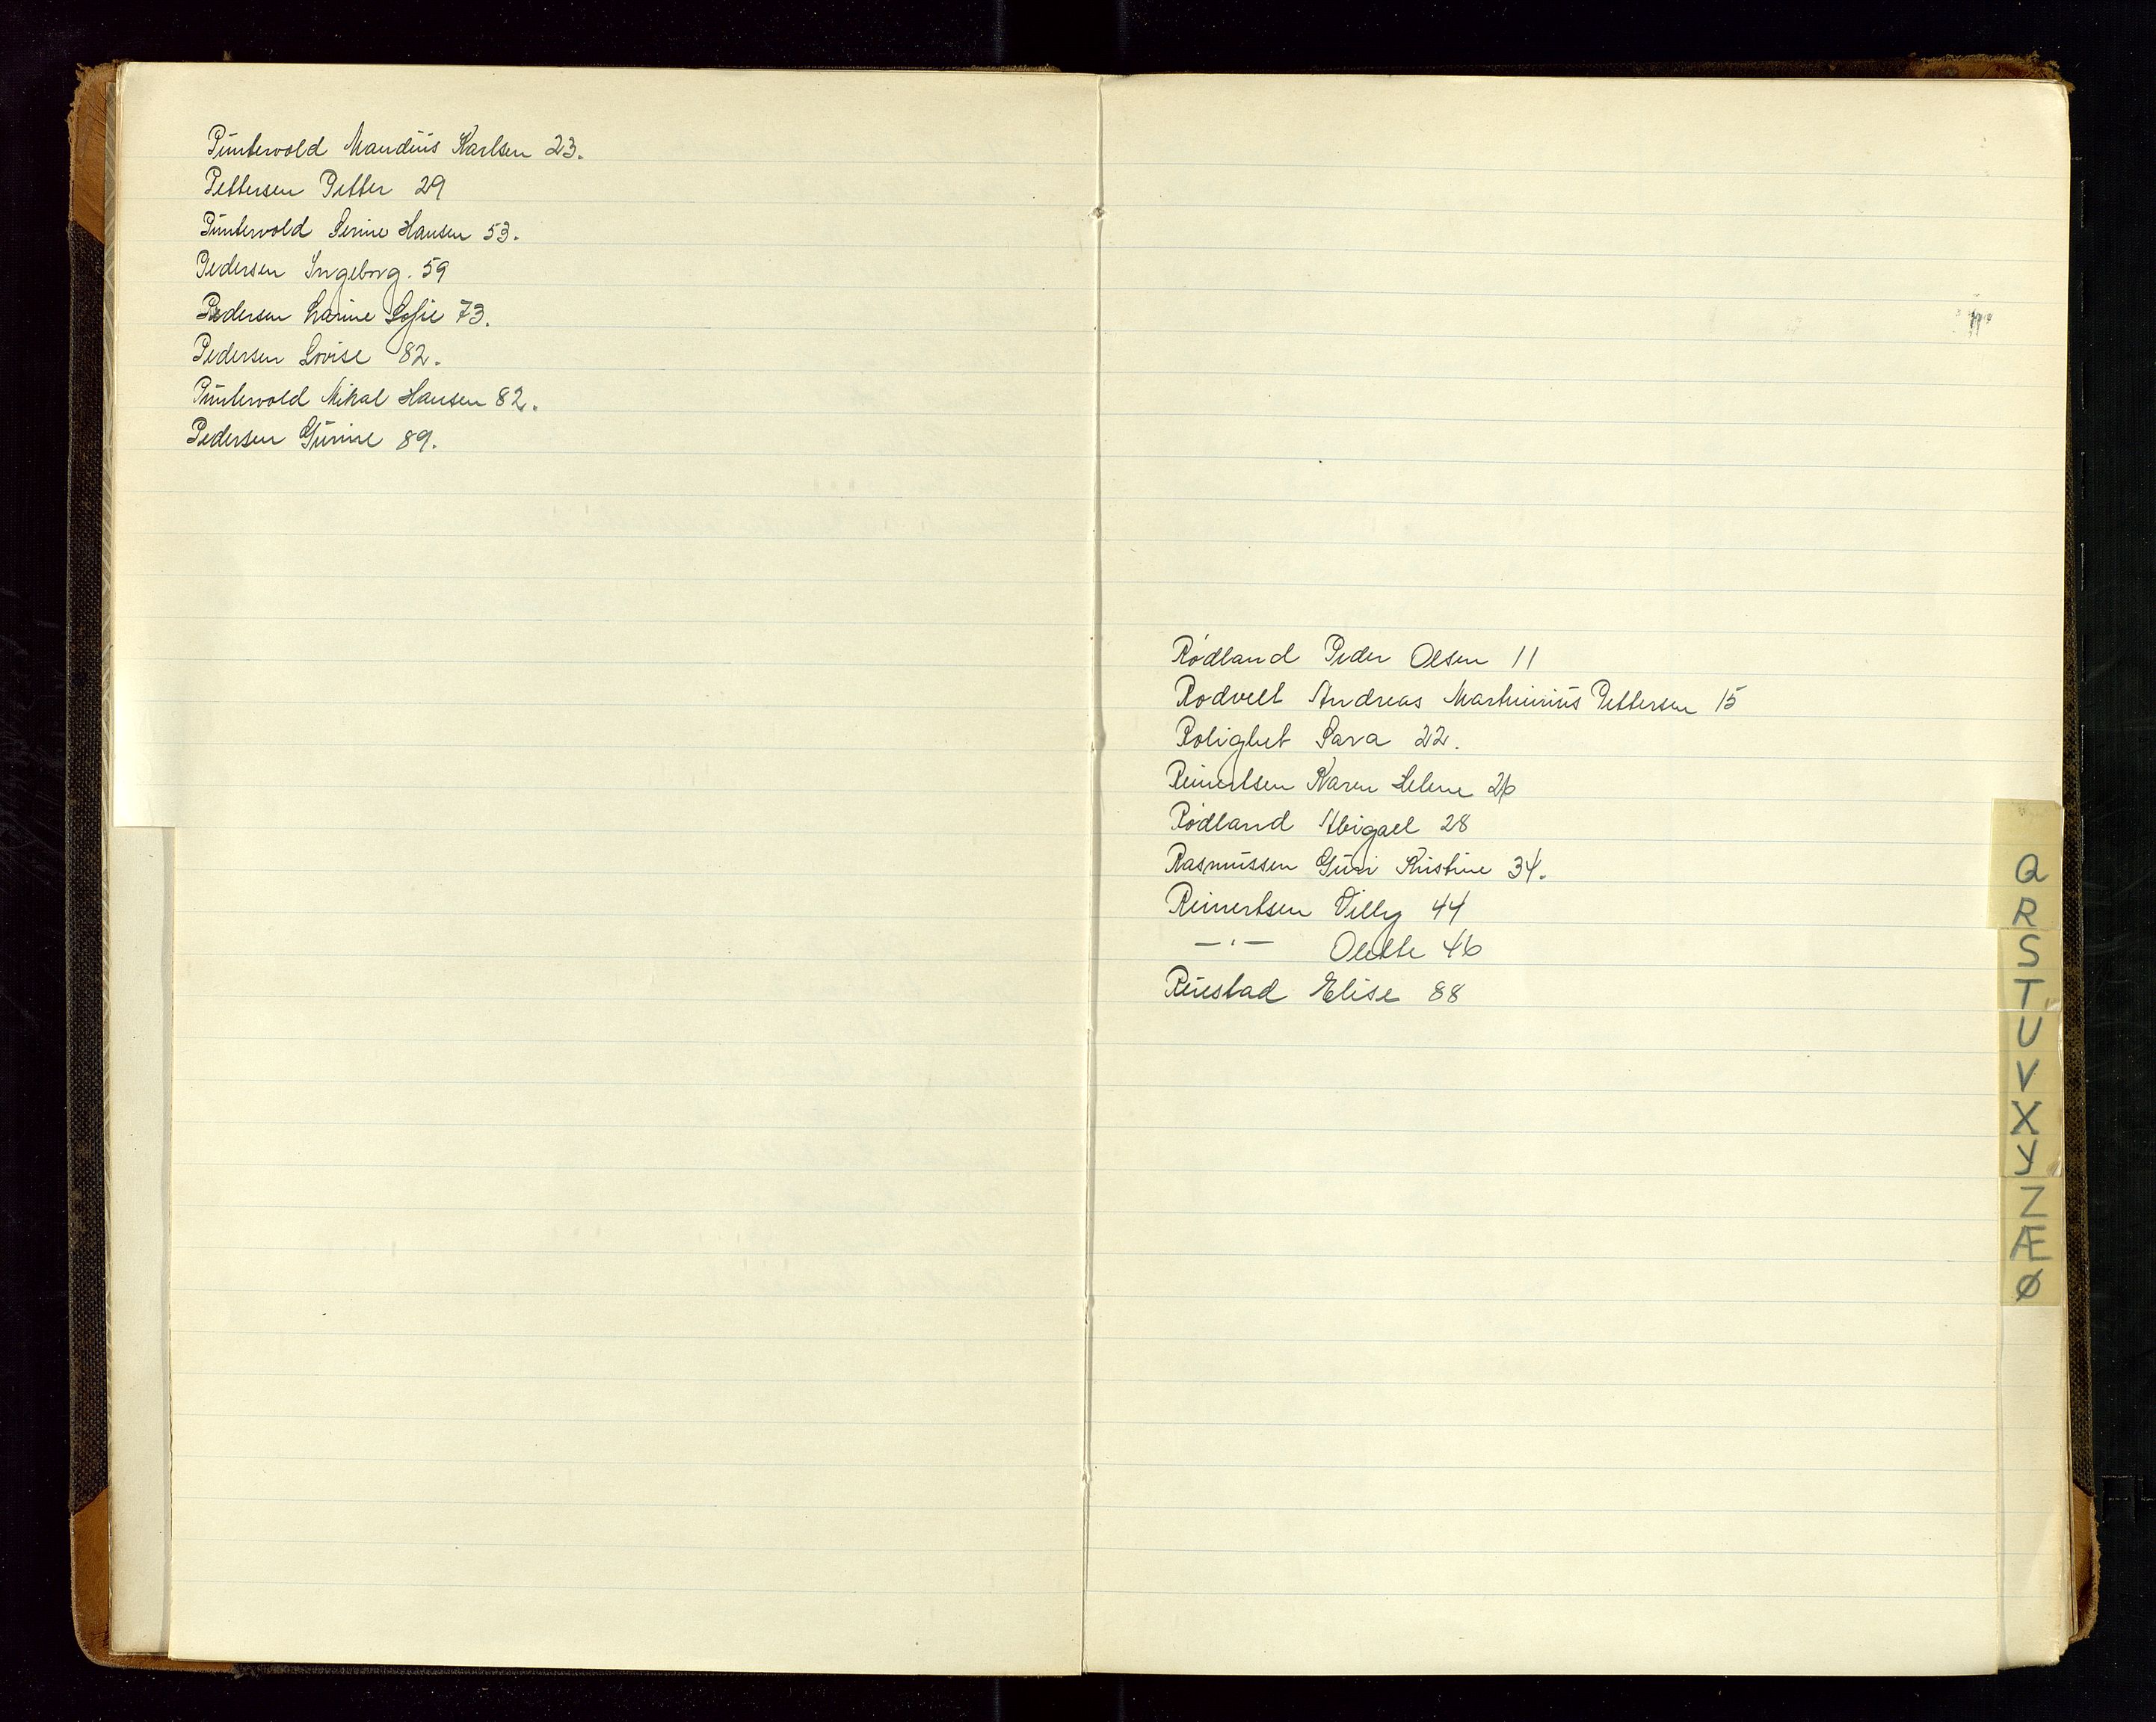 Puntervold Maudius Karlsen 23.
Pettersen Petter 29
Puntervold Serine Hansen 53.
Pedersen Ingeborg. 59
Pedersen Larine Sofie 73.
Pedersen Lovise 82.
Puntervold Mikal Hansen 82.
Pedersen Gurine 89.
Rødland Peder Olsen 11
Rodvelt Andreas Martinius Pettersen 15
Rolighet Sara 22.
Reinertsen Karen Helene 26
Rødland Abigael 28
Rasmussen Guri Kristine 34.
Reinertsen Villy 44
—"— Olette 46
Ruestad Elise 88
Q
R
S
T
U
V
X
Y
Z
Æ
Ø